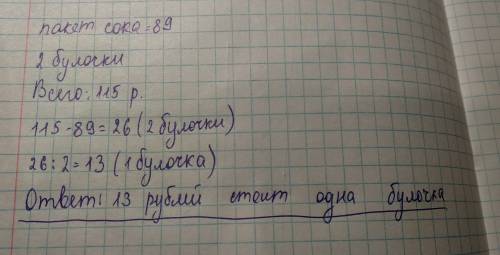 пакет сока=89
2 булочки
Всего: 115 р.
115-89=26 (2 булочки)
26:2=13 (1 булочка)
Ответ: 13 рублий стоит одна булочка